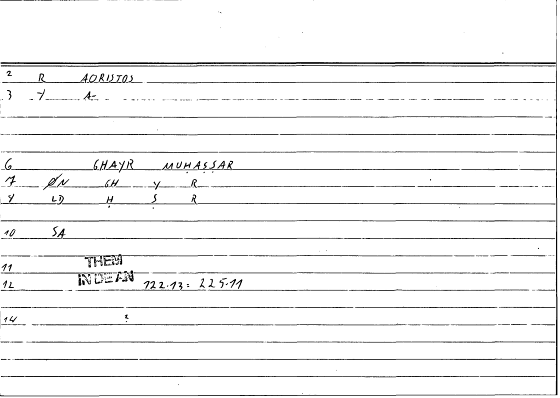 2 R AORISTOS
3 Y A-
6 GHAYR MUḤAṢṢAR
7 ØN GH Y R
4 LD Ḥ Ṣ R
10 SA
11 THEM
12 IN DE AN 122.13: 225.11
14